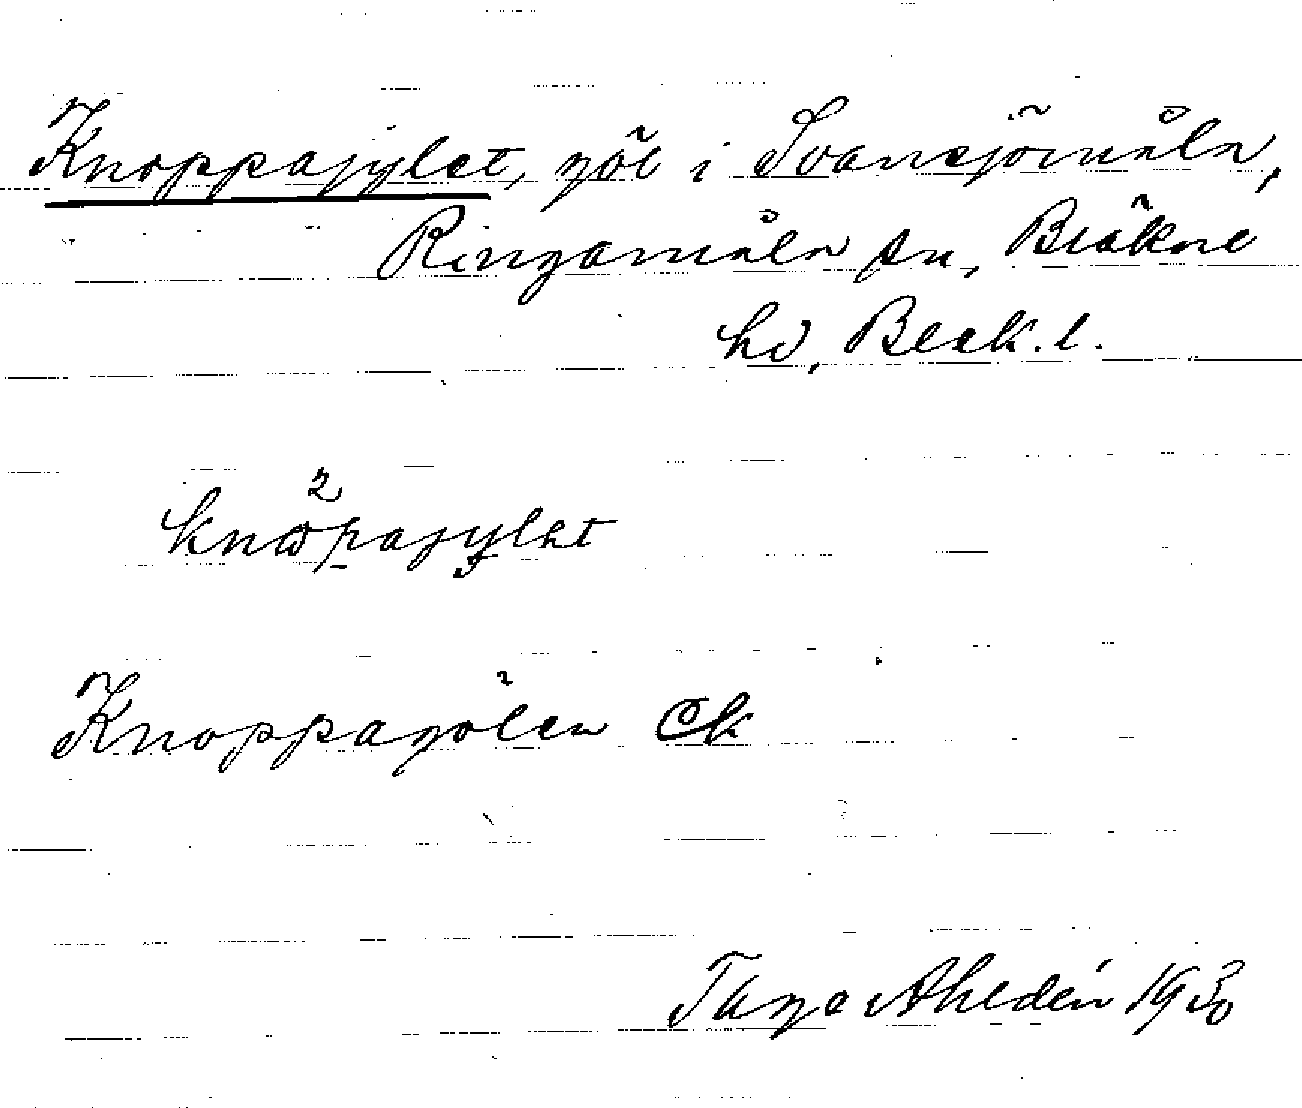 Knoppajylet, göl i Svansjömåla,
Ringamåla sn, Bräkne
hd, Blek. l.
2
knɷpajylət
Knoppagölen Ek
Tage Ahldén 1930